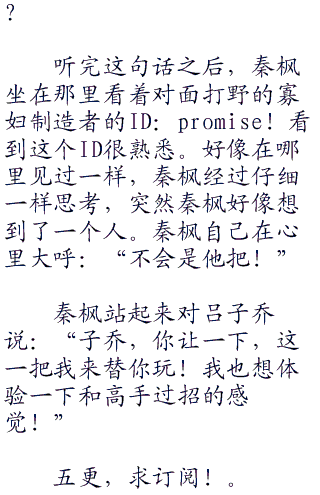 ?
听完这句话之后，秦枫
坐在那里看着对面打野的寡
妇制造者的ID：promise！看
到这个ID很熟悉。好像在哪
里见过一样，秦枫经过仔细
一样思考，突然秦枫好像想
到了一个人。秦枫自己在心
里大呼：“不会是他把！”
秦枫站起来对吕子乔
说：“子乔，你让一下，这
一把我来替你玩！我也想体
验一下和高手过招的感
觉！”
五更，求订阅！。